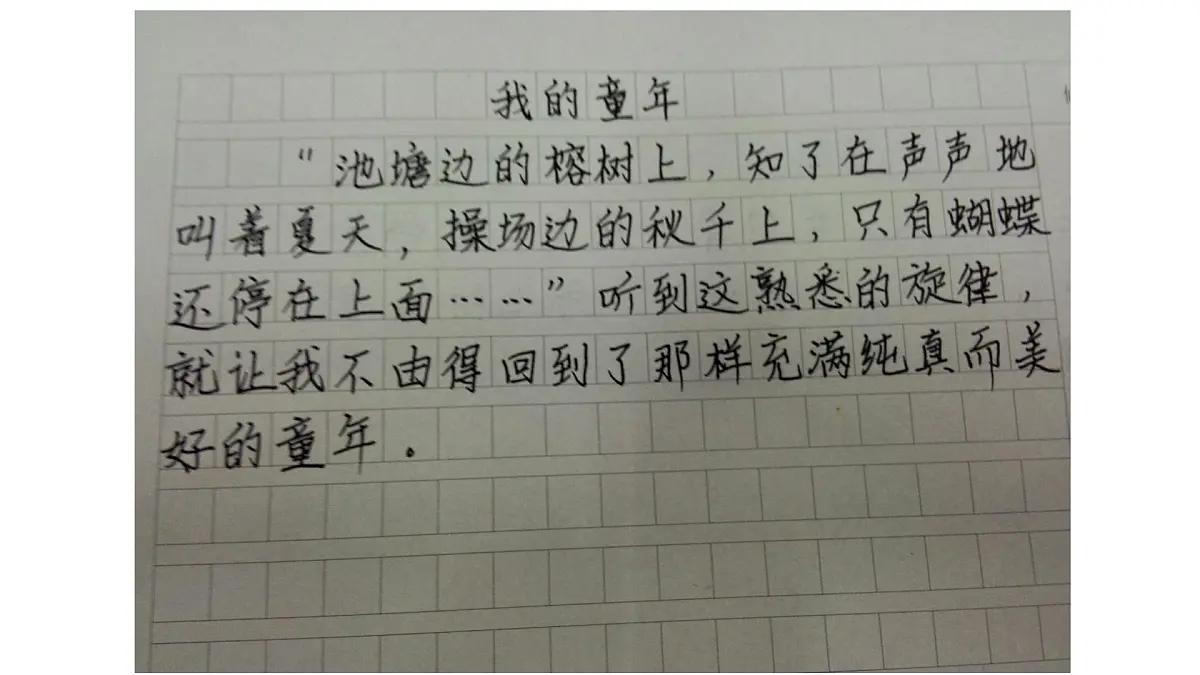 我的童年
“池塘边的榕树上，知了在声声地
叫着夏天，操场边的秋千上，只有蝴蝶
还停在上面……”听到这熟悉的旋律，
就让我不由得回到了那样充满纯真而美
好的童年。